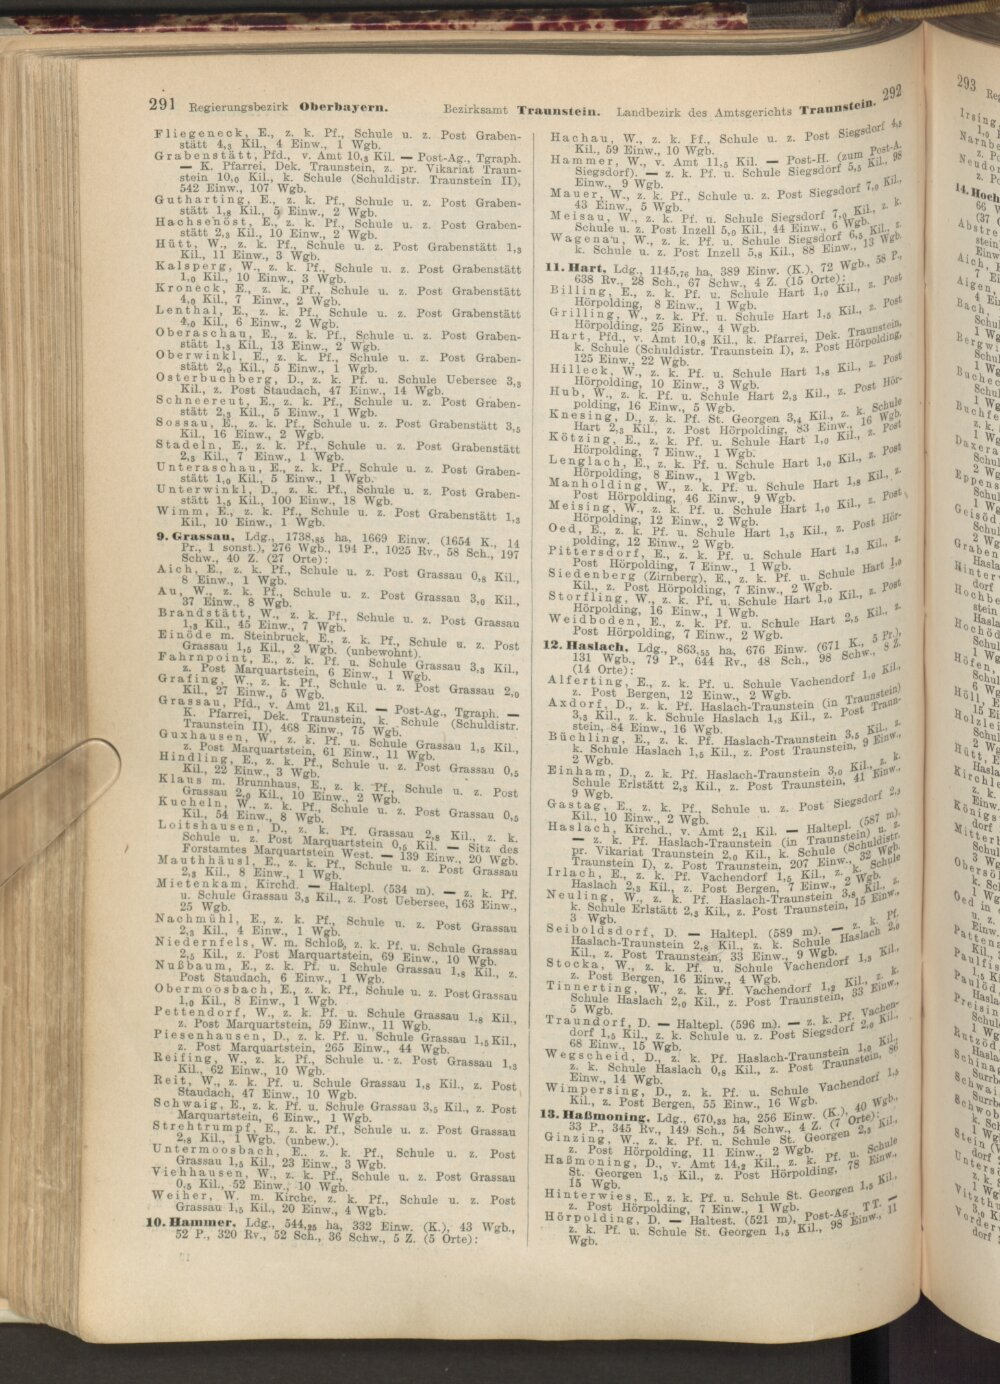 291 Regierungsbezirk Oberbayern.
Bezirksamt Traunstein. Landbezirk des Amtsgerichts Traunstein. 292
Fliegeneck, E., z. k. Pf., Schule u. z. Post Graben-
stätt 4,3 Kil., 4 Einw., 1 Wgb.
Grabenstätt, Pfd., v. Amt 10,3 Kil. — Post-Ag., Tgraph.
— K. Pfarrei, Dek. Traunstein, z. pr. Vikariat Traun-
stein 10,0 Kil., k. Schule (Schuldistr. Traunstein II),
542 Einw., 107 Wgb.
Gutharting, E., z. k. Pf., Schule u. z. Post Graben-
stätt 1,8 Kil., 5 Einw., 2 Wgb.
Hachsenöst, E., z. k. Pf., Schule u. z. Post Graben-
stätt 2,3 Kil., 10 Einw., 2 Wgb.
Hütt, W., z. k. Pf., Schule u. z. Post Grabenstätt 1,3
Kil., 11 Einw., 3 Wgb.
Kalsperg, W., z. k. Pf., Schule u. z. Post Grabenstätt
1,0 Kil., 10 Einw., 3 Wgb.
Kroneck, E., z. k. Pf., Schule u. z. Post Grabenstätt
4,0 Kil., 7 Einw., 2 Wgb.
Lenthal, E., z. k. Pf., Schule u. z. Post Grabenstätt
4,0 Kil., 6 Einw., 2 Wgb.
Oberaschau, E., z. k. Pf., Schule u. z. Post Graben-
stätt 1,3 Kil., 13 Einw., 2 Wgb.
Oberwinkl, E., z. k. Pf., Schule u. z. Post Graben-
stätt 2,0 Kil., 5 Einw., 1 Wgb.
Osterbuchberg, D., z. k. Pf. u. Schule Uebersee 3,3
Kil., z. Post Staudach, 47 Einw., 14 Wgb.
Schneereut, E., z. k. Pf., Schule u. z. Post Graben-
stätt 2,3 Kil., 5 Einw., 1 Wgb.
Sossau, E., z. k. Pf., Schule u. z. Post Grabenstätt 3,5
Kil., 16 Einw., 2 Wgb.
Stadeln, E., z. k. Pf., Schule u. z. Post Grabenstätt
2,3 Kil., 7 Einw., 1 Wgb.
Unteraschau, E., z. k. Pf., Schule u. z. Post Graben-
stätt 1,0 Kil., 5 Einw., 1 Wgb.
Unterwinkl, D., z. k. Pf., Schule u. z. Post Graben-
stätt 1,5 Kil., 100 Einw., 18 Wgb.
Wimm, E., z. k. Pf., Schule u. z. Post Grabenstätt 1,3
Kil., 10 Einw., 1 Wgb.
9. Grassau, Ldg., 1738,85 ha, 1669 Einw. (1654 K., 14
Pr., 1 sonst.), 276 Wgb., 194 P., 1025 Rv., 58 Sch., 197
Schw., 40 Z. (27 Orte):
Aich, E., z. k. Pf., Schule u. z. Post Grassau 0,8 Kil.,
8 Einw., 1 Wgb.
Au, W., z. k. Pf., Schule u. z. Post Grassau 3,0 Kil.,
37 Einw., 8 Wgb.
Brandstätt, W., z. k. Pf., Schule u. z. Post Grassau
1,3 Kil., 45 Einw., 7 Wgb.
Einöde m. Steinbruck, E., z. k. Pf., Schule u. z. Post
Grassau 1,5 Kil., 2 Wgb. (unbewohnt).
Fahrnpoint, E., z. k. Pf. u. Schule Grassau 3,3 Kil.,
z. Post Marquartstein, 6 Einw., 1 Wgb.
Grafing, W., z. k. Pf., Schule u. z. Post Grassau 2,0
Kil., 27 Einw., 5 Wgb.
Grassau, Pfd., v. Amt 21,3 Kil. — Post-Ag., Tgraph. —
K. Pfarrei, Dek. Traunstein, k. Schule (Schuldistr.
Traunstein II), 468 Einw., 75 Wgb.
Guxhausen, W., z. k. Pf. u. Schule Grassau 1,5 Kil.,
z. Post Marquartstein, 61 Einw., 11 Wgb.
Hindling, E., z. k. Pf., Schule u. z. Post Grassau 0,5
Kil., 22 Einw., 3 Wgb.
Klaus m. Brunnhaus, E., z. k. Pf., Schule u. z. Post
Grassau 2,0 Kil., 10 Einw., 2 Wgb.
Kucheln, W., z. k. Pf., Schule u. z. Post Grassau 0,5
Kil., 54 Einw., 8 Wgb.
Loitshausen, D., z. k. Pf. Grassau 2,8 Kil., z. k.
Schule u. z. Post Marquartstein 0,5 Kil. — Sitz des
Forstamtes Marquartstein West. — 139 Einw., 20 Wgb.
Mauthhäusl, E., z. k. Pf., Schule u. z. Post Grassau
2,3 Kil., 8 Einw., 1 Wgb.
Mietenkam, Kirchd. — Haltepl. (534 m). — z. k. Pf.
u. Schule Grassau 3,3 Kil., z. Post Uebersee, 163 Einw.,
25 Wgb.
Nachmühl, E., z. k. Pf., Schule u. z. Post Grassau
2,3 Kil., 4 Einw., 1 Wgb.
Niedernfels, W. m. Schloß, z. k. Pf. u. Schule Grassau
2,5 Kil., z. Post Marquartstein, 69 Einw., 10 Wgb.
Nußbaum, E., z. k. Pf. u. Schule Grassau 1,8 Kil., z.
Post Staudach, 6 Einw., 1 Wgb.
Obermoosbach, E., z. k. Pf., Schule u. z. Post Grassau
1,0 Kil., 8 Einw., 1 Wgb.
Pettendorf, W., z. k. Pf. u. Schule Grassau 1,8 Kil.,
z. Post Marquartstein, 59 Einw., 11 Wgb.
Piesenhausen, D., z. k. Pf. u. Schule Grassau 1,5 Kil.,
z. Post Marquartstein, 265 Einw., 44 Wgb.
Reifing, W., z. k. Pf., Schule u. z. Post Grassau 1,3
Kil., 62 Einw., 10 Wgb.
Reit, W., z. k. Pf. u. Schule Grassau 1,8 Kil., z. Post
Staudach, 47 Einw., 10 Wgb.
Schwaig, E., z. k. Pf. u. Schule Grassau 3,5 Kil., z. Post
Marquartstein, 6 Einw., 1 Wgb.
Strehtrumpf, E., z. k. Pf., Schule u. z. Post Grassau
2,8 Kil., 1 Wgb. (unbew.).
Untermoosbach, E., z. k. Pf., Schule u. z. Post
Grassau 1,5 Kil., 23 Einw., 3 Wgb.
Viehhausen, W., z. k. Pf., Schule u. z. Post Grassau
0,5 Kil., 52 Einw., 10 Wgb.
Weiher, W. m. Kirche, z. k. Pf., Schule u. z. Post
Grassau 1,5 Kil., 20 Einw., 4 Wgb.
10. Hammer, Ldg., 544,25 ha, 332 Einw. (K.), 43 Wgb.,
52 P., 320 Rv., 52 Sch., 36 Schw., 5 Z. (5 Orte):
Hachau, W., z. k. Pf., Schule u. z. Post Siegsdorf 4,5
Kil., 59 Einw., 10 Wgb.
Hammer, W., v. Amt 11,5 Kil. — Post-H. (zum Post-A.
Siegsdorf). — z. k. Pf. u. Schule Siegsdorf 5,5 Kil., 98
Einw., 9 Wgb.
Mauer, W., z. k. Pf., Schule u. z. Post Siegsdorf 7,0 Kil.,
43 Einw., 5 Wgb.
Meisau, W., z. k. Pf. u. Schule Siegsdorf 7,0 Kil., z. k.
Schule u. z. Post Inzell 5,0 Kil., 44 Einw., 6 Wgb.
Wagenau, W., z. k. Pf. u. Schule Siegsdorf 6,5 Kil., z.
k. Schule u. z. Post Inzell 5,8 Kil., 88 Einw., 13 Wgb.
11. Hart, Ldg., 1145,76 ha, 389 Einw. (K.), 72 Wgb., 58 P.,
638 Rv., 28 Sch., 67 Schw., 4 Z. (15 Orte):
Billing, E., z. k. Pf. u. Schule Hart 1,0 Kil., z. Post
Hörpolding, 8 Einw., 1 Wgb.
Grilling, W., z. k. Pf. u. Schule Hart 1,5 Kil., z. Post
Hörpolding, 25 Einw., 4 Wgb.
Hart, Pfd., v. Amt 10,8 Kil., k. Pfarrei, Dek. Traunstein,
k. Schule (Schuldistr. Traunstein I), z. Post Hörpolding,
125 Einw., 22 Wgb.
Hilleck, W., z. k. Pf. u. Schule Hart 1,8 Kil., z. Post
Hörpolding, 10 Einw., 3 Wgb.
Hub, W., z. k. Pf. u. Schule Hart 2,3 Kil., z. Post Hör-
polding, 16 Einw., 5 Wgb.
Knesing, D., z. k. Pf. St. Georgen 3,4 Kil., z. k. Schule
Hart 2,3 Kil., z. Post Hörpolding, 83 Einw., 16 Wgb.
Kötzing, E., z. k. Pf. u. Schule Hart 1,0 Kil., z. Post
Hörpolding, 7 Einw., 1 Wgb.
Lenglach, E., z. k. Pf. u. Schule Hart 1,0 Kil., z. Post
Hörpolding, 8 Einw., 1 Wgb.
Manholding, W., z. k. Pf. u. Schule Hart 1,8 Kil., z.
Post Hörpolding, 46 Einw., 9 Wgb.
Meising, W., z. k. Pf. u. Schule Hart 1,0 Kil., z. Post
Hörpolding, 12 Einw., 2 Wgb.
Oed, E., z. k. Pf. u. Schule Hart 1,5 Kil., z. Post Hör-
polding, 12 Einw., 2 Wgb.
Pittersdorf, E., z. k. Pf. u. Schule Hart 1,3 Kil., z.
Post Hörpolding, 7 Einw., 1 Wgb.
Siedenberg (Zirnberg), E., z. k. Pf. u. Schule Hart 1,0
Kil., z. Post Hörpolding, 7 Einw., 2 Wgb.
Storfling, W., z. k. Pf. u. Schule Hart 1,0 Kil., z. Post
Hörpolding, 16 Einw., 1 Wgb.
Weidboden, E., z. k. Pf. u. Schule Hart 2,5 Kil., z.
Post Hörpolding, 7 Einw., 2 Wgb.
12. Haslach, Ldg., 863,55 ha, 676 Einw. (671 K., 5 Pr.),
131 Wgb., 79 P., 644 Rv., 48 Sch., 98 Schw., 8 Z.
(14 Orte):
Alferting, E., z. k. Pf. u. Schule Vachendorf 1,0 Kil.,
z. Post Bergen, 12 Einw., 2 Wgb.
Axdorf, D., z. k. Pf. Haslach-Traunstein (in Traunstein)
3,3 Kil., z. k. Schule Haslach 1,3 Kil., z. Post Traun-
stein, 84 Einw., 16 Wgb.
Büchling, E., z. k. Pf. Haslach-Traunstein 3,5 Kil., z.
k. Schule Haslach 1,5 Kil., z. Post Traunstein, 9 Einw.,
2 Wgb.
Einham, D., z. k. Pf. Haslach-Traunstein 3,0 Kil., z. k.
Schule Erlstätt 2,3 Kil., z. Post Traunstein, 41 Einw.,
9 Wgb.
Gastag, E., z. k. Pf., Schule u. z. Post Siegsdorf 2,3
Kil., 10 Einw., 2 Wgb.
Haslach, Kirchd., v. Amt 2,1 Kil. — Haltepl. (587 m).
— z. k. Pf. Haslach-Traunstein (in Traunstein) u. z.
pr. Vikariat Traunstein 2,0 Kil., k. Schule (Schuldistr.
Traunstein I), z. Post Traunstein, 207 Einw., 32 Wgb.
Irlach, E., z. k. Pf. Vachendorf 1,5 Kil., z. k. Schule
Haslach 2,3 Kil., z. Post Bergen, 7 Einw., 2 Wgb.
Neuling, W., z. k. Pf. Haslach-Traunstein 3,8 Kil., z.
k. Schule Erlstätt 2,3 Kil., z. Post Traunstein, 15 Einw.,
3 Wgb.
Seiboldsdorf, D. — Haltepl. (589 m). — z. k. Pf.
Haslach-Traunstein 2,8 Kil., z. k. Schule Haslach 2,0
Kil., z. Post Traunstein, 33 Einw., 9 Wgb.
Stocka, W., z. k. Pf. u. Schule Vachendorf 1,3 Kil.,
z. Post Bergen, 16 Einw., 4 Wgb.
Tinnerting, W., z. k. Pf. Vachendorf 1,2 Kil., z. k.
Schule Haslach 2,0 Kil., z. Post Traunstein, 33 Einw.,
5 Wgb.
Traundorf, D. — Haltepl. (596 m). — z. k. Pf. Vachen-
dorf 1,5 Kil., z. k. Schule u. z. Post Siegsdorf 2,0 Kil.,
68 Einw., 15 Wgb.
Wegscheid, D., z. k. Pf. Haslach-Traunstein 1,0 Kil.,
z. k. Schule Haslach 0,8 Kil., z. Post Traunstein, 86
Einw., 14 Wgb.
Wimpersing, D., z. k. Pf. u. Schule Vachendorf 1,5
Kil., z. Post Bergen, 55 Einw., 16 Wgb.
13. Haßmoning, Ldg., 670,33 ha, 256 Einw. (K.), 40 Wgb.,
33 P., 345 Rv., 149 Sch., 54 Schw., 4 Z. (7 Orte):
Ginzing, W., z. k. Pf. u. Schule St. Georgen 2,3 Kil.,
z. Post Hörpolding, 11 Einw., 2 Wgb.
Haßmoning, D., v. Amt 14,2 Kil., z. k. Pf. u. Schule
St. Georgen 1,5 Kil., z. Post Hörpolding, 78 Einw.,
15 Wgb.
Hinterwies, E., z. k. Pf. u. Schule St. Georgen 1,5 Kil.,
z. Post Hörpolding, 7 Einw., 1 Wgb.
Hörpolding, D. — Haltest. (521 m), Post-Ag., TT. —
z. k. Pf. u. Schule St. Georgen 1,5 Kil., 98 Einw., 11
Wgb.
293
14. Hoch